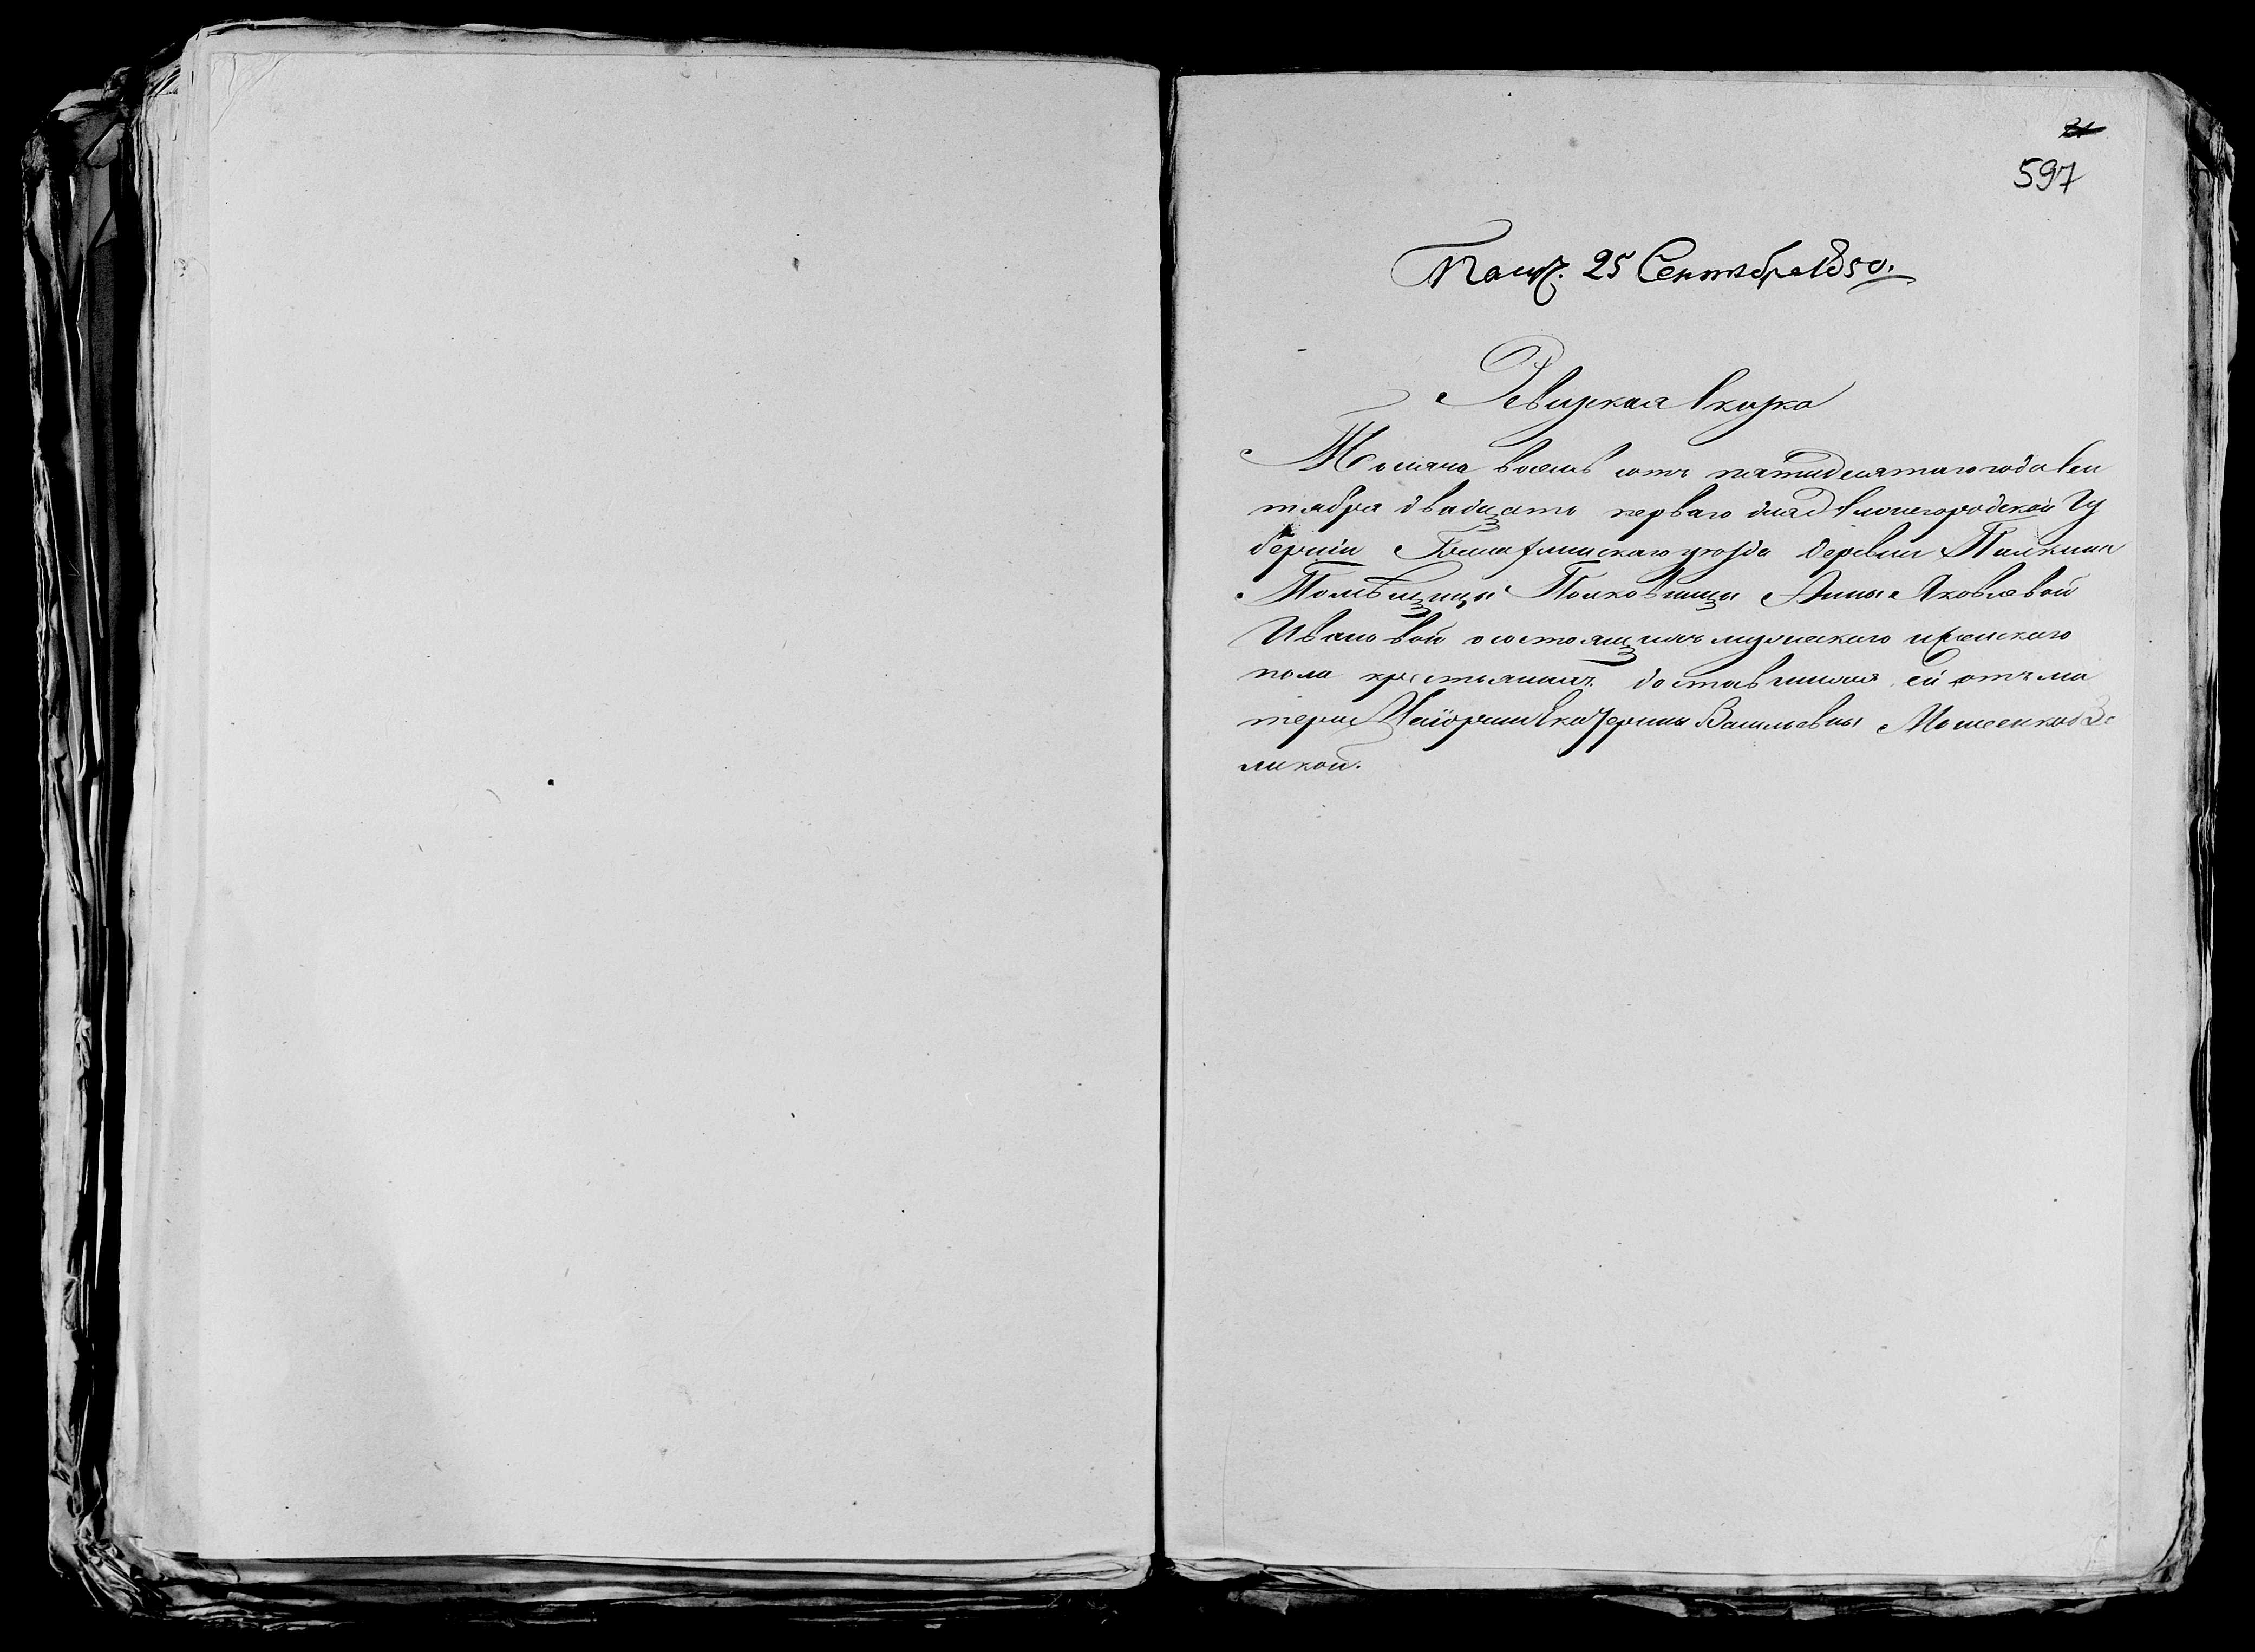 597
Получ. 25 Сентября 1850.
Ревижская скажа
Тысяча восемь сотъ пятидесятаго года Сен
тября двадцать перваго дня Нижегородской Гу
берніи уезда деревни
Помѣщицы Полковницы Анны Яковлевой
Ивановой о состоящихъ мужескаго и женскаго
пола крестьянахъ доставшихся ей отъ ма
тери Маіорши Екатерины Васильевны